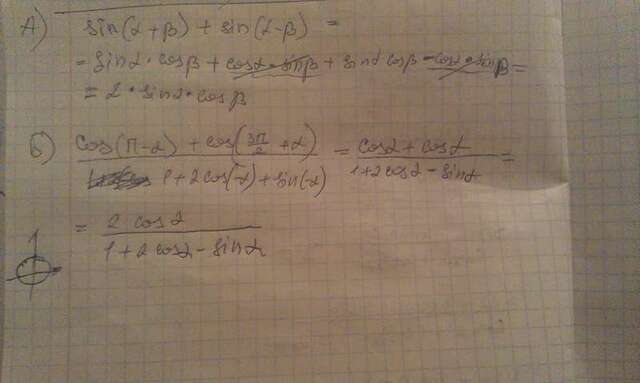 А) sin(α+β) + sin(α-β) =
= sinα · cosβ + cosα · sinβ + sinα cosβ - cosα · sinβ =
= 2 · sinα · cosβ
б) cos(π-α) + cos(3π/2 + α) / 1+2cos(-α)+sin(-α) = cosα + cosα / 1+2cosα - sinα =
= 2 cosα / 1+2cosα - sinα